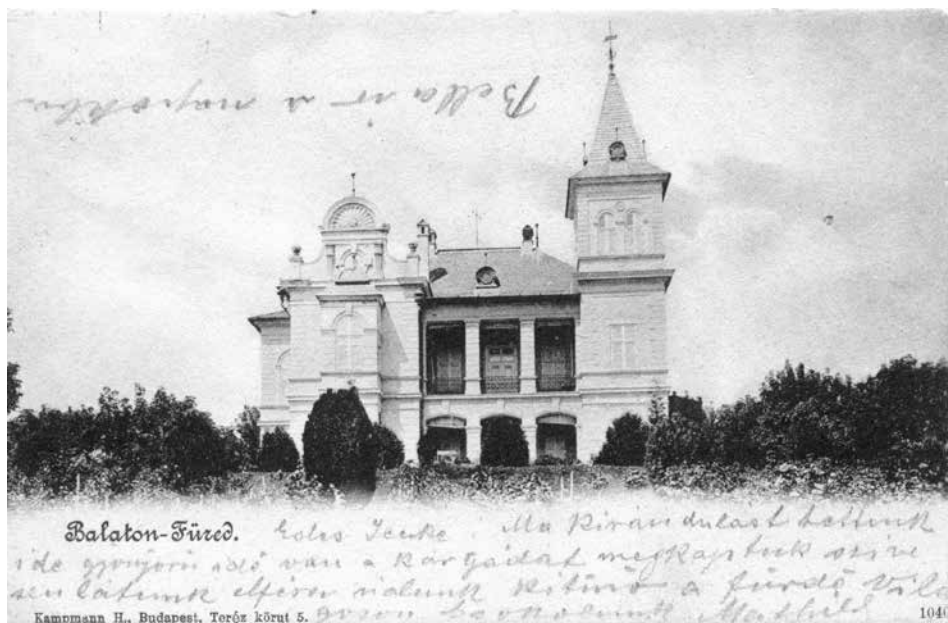 Bella is a
Balaton-Füred. Edes Icuke. Ma kirándulást tettünk
ide gyönyörü idö van a megkaptuk szive
sen látunk elférsz nálunk kitünö a fürdö
Mathild
Kampmann H., Budapest, Teréz körut 5. 1040